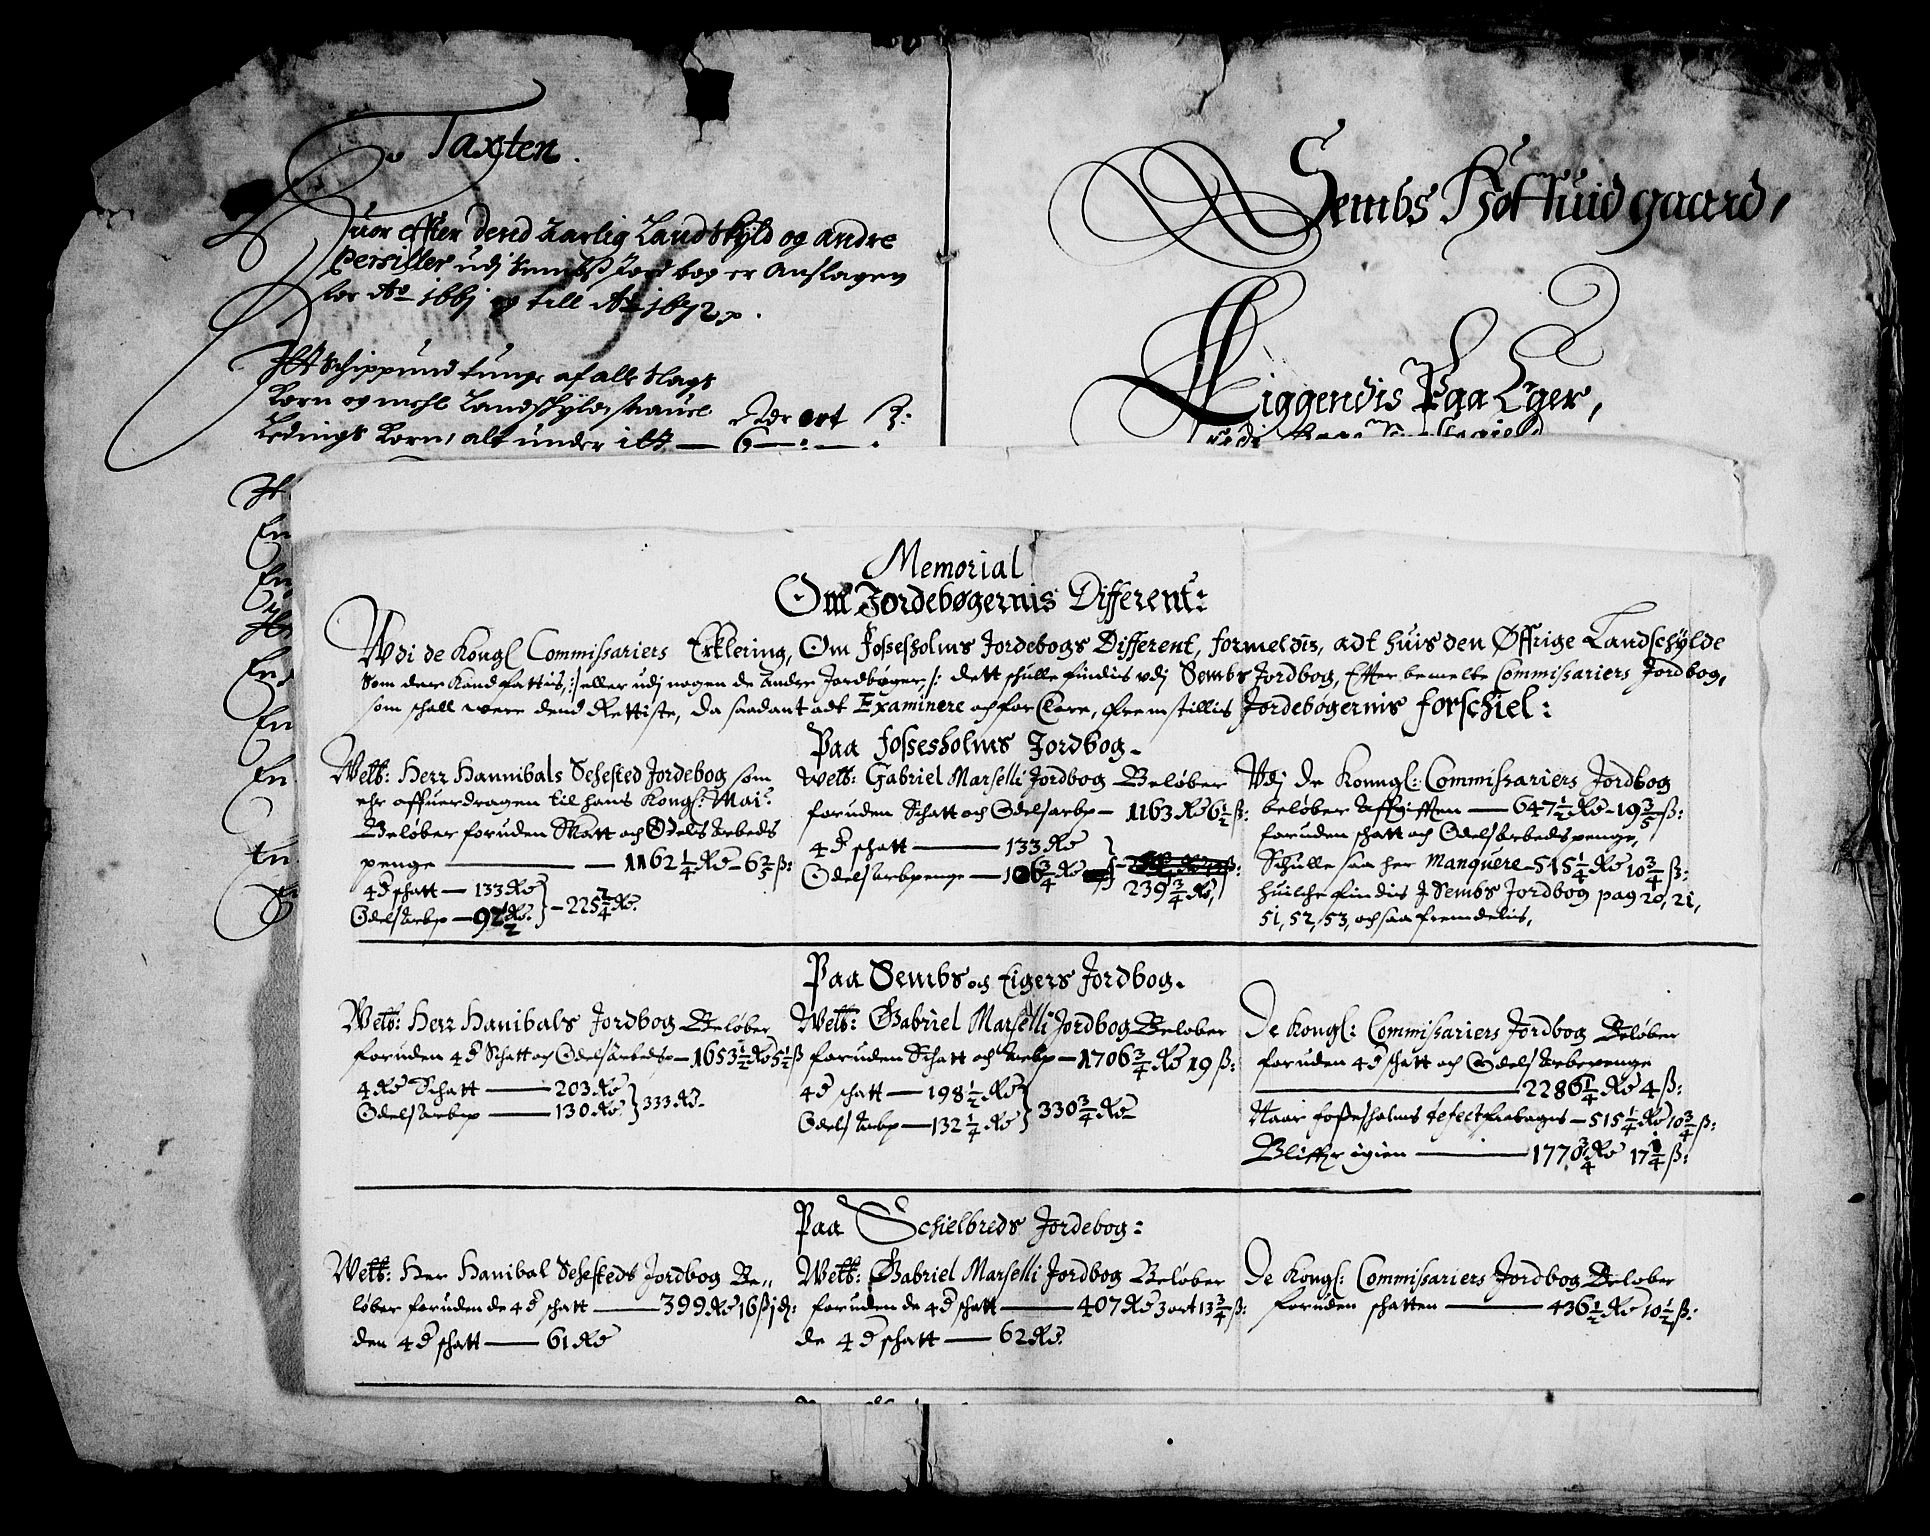 Taxten.
Huor effter dend aarlig Landskyld og andre
Persiller udj Sembs Jordbog er Anslagen
for Ao 1661 og till Ao 1672
Itt Schippund tunge af alle slags
Korn og mehl Landskyld,
Ledings Korn, alt under itt — 6 — : — .
Rdr ort ß:
Sembs Hoffuid gaard,
Liggendis Paa Eger,
Memorial
Om Jordebøgernis Different:
Wdi de Kongl Commissariers Erklering, Om Fossesholms Jordebogs Different, formeldis, adt huis den Øffrige Landschylde
som der Kand fattis, :/ eller udj nogen de andre Jordbøger, /: dett schulle findis vdj Sembs Jordbog, Efter bemelte Commissariers Jordbog,
som schall were dend Rettiste, da saadant adt Examinere och forClare, fremstillis Jordebøgernis forschiel:
Paa Fossesholms Jordbog.
Welb: Herr Hannibals Sehested Jordebog som
ehr offuerdragen til hans Kongl: Mait:
Beløber foruden Skatt och Ødels Arbeds
penge — 1162 1/4 Rd - 6 2/5 ß:
4 d schatt — 133 Rd
Ødels Arbp — 92 1/2 Rd. } - 225 1/4 Rd.
Welb: Gabriel Marselli Jordbog Beløber
foruden Schatt och Ødelsarbp — 1163 Rd 6 1/2 ß:
4 d schatt — 133 Rd
Ødels Arbpenge — 106 3/4 Rd
239 3/4 Rd,
Udj De Konngl: Commissariers Jordbog
beløber Affgifften — 647 1/2 Rd - 19 3/5 ß:
foruden schatt och Ødels Arbeds penge,
Schulle saa her Manquere - 515 1/4 Rd 10 3/4 ß:
huilche findis J Sembs Jordbog pag 20, 21,
51, 52, 53, och saa fremdelis,
Paa Sembs och Eigers Jordbog.
Welb: Herr Hanibals Jordbog Beløber
foruden 4 d Schatt och Ødels Arbedsp — 1653 1/2 Rd 5 1/2 ß
4 Rd Schatt — 203 Rd
Ødels Arbp — 130 Rd } 333 Rd.
Welb: Gabriel Marselli Jordbog Beløber
foruden Schatt och Arbp — 1706 3/4 Rd 19 ß:
4 d schatt — 198 1/2 Rd
Ødels Arbp — 132 1/4 Rd } 330 3/4 Rd
De Kongl: Commissariers Jordbog Beløber
foruden 4 d schatt och Ødels Arbspenge
— 2286 1/4 Rd 4 ß:
Naar Fossesholms defect frabages — 515 1/4 Rd 10 3/4 ß:
Bliffr igien — 1770 3/4 Rd 17 1/4 ß:
Paa Schielbreds Jordebog:
Welb: Her Hanibal Sehesteds Jordbog Be,,
løber foruden de 4 d schatt — 399 Rd 16 ß 1 d:
den 4 d schatt — 61 Rd
Welb: Gabriel Marselli Jordbog Beløber
foruden de 4 d schatt — 407 Rd 3 ort 13 3/4 ß:
de 4 d schatt — 62 Rd.
De Kongl: Commissariers Jordbog Beløber
foruden schatten — 436 1/2 Rd 10 1/2 ß: